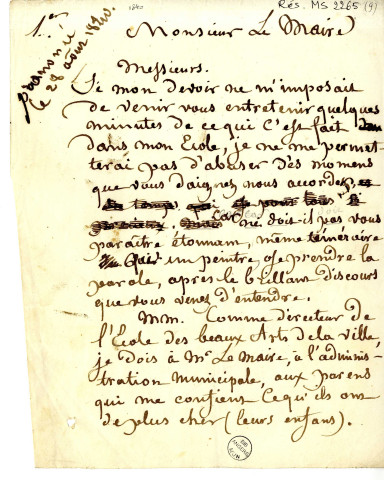 1840
Rés. MS 2265 (9)
1.er
Monsieur Le Maire
prononcé
le 28 aout 1840.
Messieurs.
Si mon devoir ne m'imposait
de venir vous entretenir quelques
minutes de ce qui C'est fait
dans mon Ecole, je ne me permet-
terai pas d'abuser des momens
que vous daignez nous accorder,
le temps, qui
Car ne doit-il pas vous
paraître étonnant, même téméraire
qu'un peintre, ose prendre la
parole, après le brillant discours
que vous venez d'entendre.
MM. Comme directeur de
l'Ecole des beaux Arts de la ville,
je dois à Mr Le Maire, à l'adminis-
tration Municipale, aux parens
qui me confient Ce qu'ils ont
de plus cher (leurs enfans).